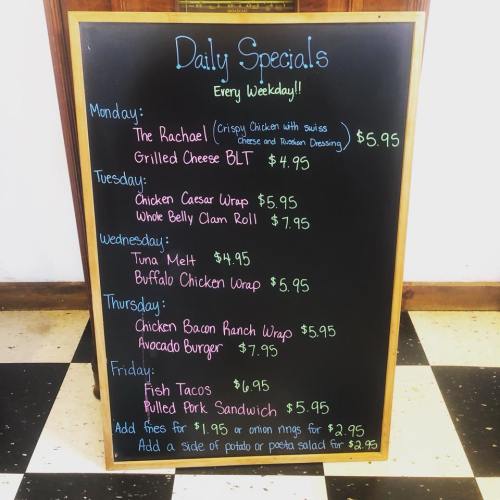 Daily Specials
Every Weekday!!
Monday:
The Rachael (Crispy Chicken with swiss
cheese and Russian Dressing) $5.95
Grilled Cheese BLT $4.95
Tuesday:
Chicken Caesar Wrap $5.95
Whole Belly Clam Roll $7.95
Wednesday:
Tuna Melt $4.95
Buffalo Chicken Wrap $5.95
Thursday:
Chicken Bacon Ranch Wrap $5.95
Avocado Burger $7.95
Friday:
Fish Tacos $6.95
Pulled Pork Sandwich $5.95
Add fries for $1.95 or onion rings for $2.95
Add a side of potato or pasta salad for $2.95